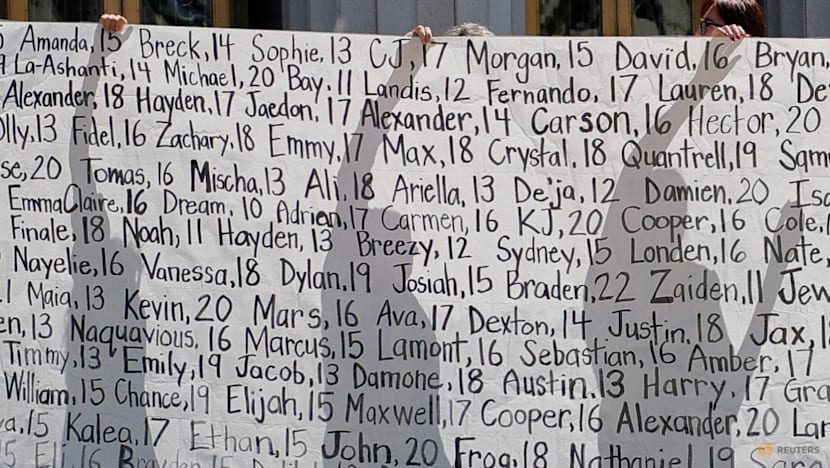 Amanda, 15 Breck, 14 Sophie, 13 CJ, 17 Morgan, 15 David, 16 Bryan,
La-Ashanti, 14 Michael, 20 Bay, 11 Landis, 12 Fernando, 17 Lauren, 18 De
Alexander, 18 Hayden, 17 Jaedon, 17 Alexander, 14 Carson, 16 Hector, 20
olly, 13 Fidel, 16 Zachary, 18 Emmy, 17 Max, 18 Crystal, 18 Quantrell, 19 Sam
se, 20 Tomas, 16 Mischa, 13 Ali, 18 Ariella, 13 De'ja, 12 Damien, 20 Isa
EmmaClaire, 16 Dream, 10 Adrien, 17 Carmen, 16 KJ, 20 Cooper, 16 Cole,
Finale, 18 Noah, 11 Hayden, 13 Breezy, 12 Sydney, 15 Londen, 16 Nate,
Nayelie, 16 Vanessa, 18 Dylan, 19 Josiah, 15 Braden, 22 Zaiden, 11 Jew
Maia, 13 Kevin, 20 Mars, 16 Ava, 17 Dexton, 14 Justin, 18 Jax,
en, 13 Naquavious, 16 Marcus, 15 Lamont, 16 Sebastian, 16 Amber, 17
Timmy, 13 Emily, 19 Jacob, 13 Damone, 18 Austin, 13 Harry, 17 Gra
William, 15 Chance, 19 Elijah, 15 Maxwell, 17 Cooper, 16 Alexander, 20 Lan
a, 15 Kalea, 17 Ethan, 15 John, 20 Frog, 18 Nathaniel, 19
REUTERS